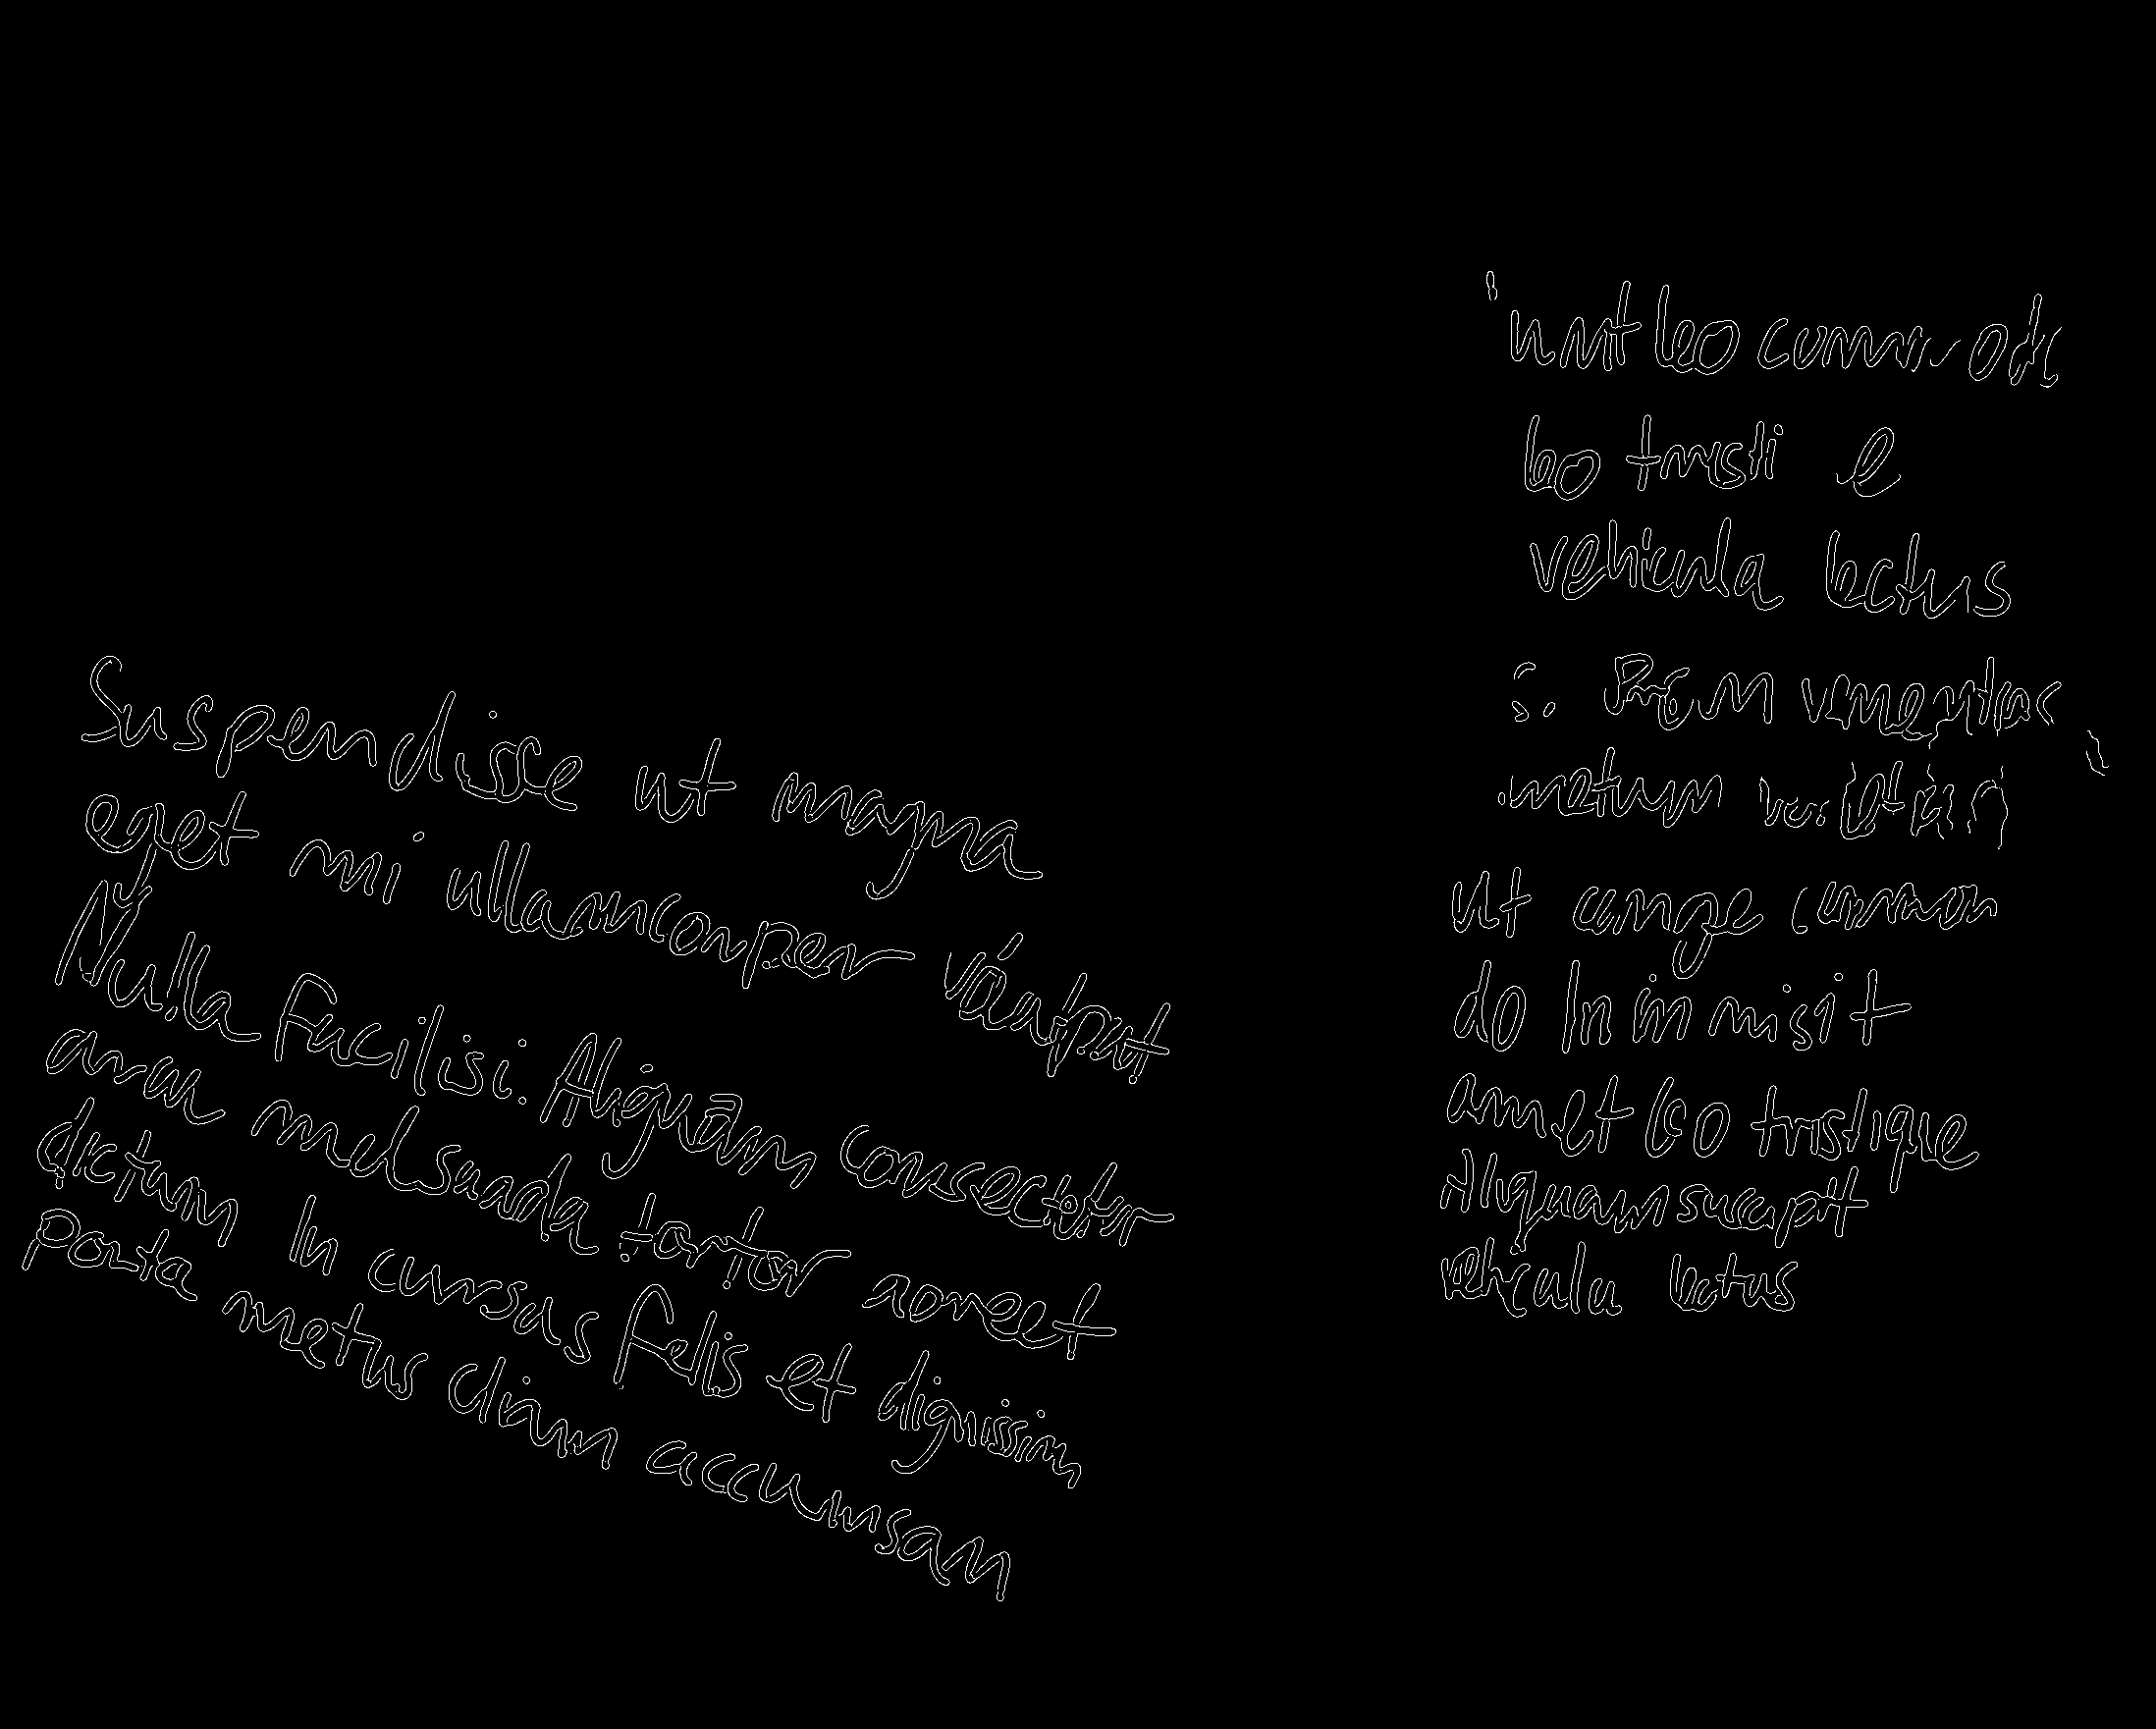 Suspendisse ut magna
eget mi ullamcorper volutpat
Nulla Facilisi. Aliquam consectetur
arcu malesuada tortor aoreet
dictum In cursus Felis et dignissim
Porta metus diam accumsan
ut leo commodo
leo tristi e
vehicula lectus
ut congue commo
do In in mi sit
amet leo tristique
Aliquam suscipit
vehicula lectus